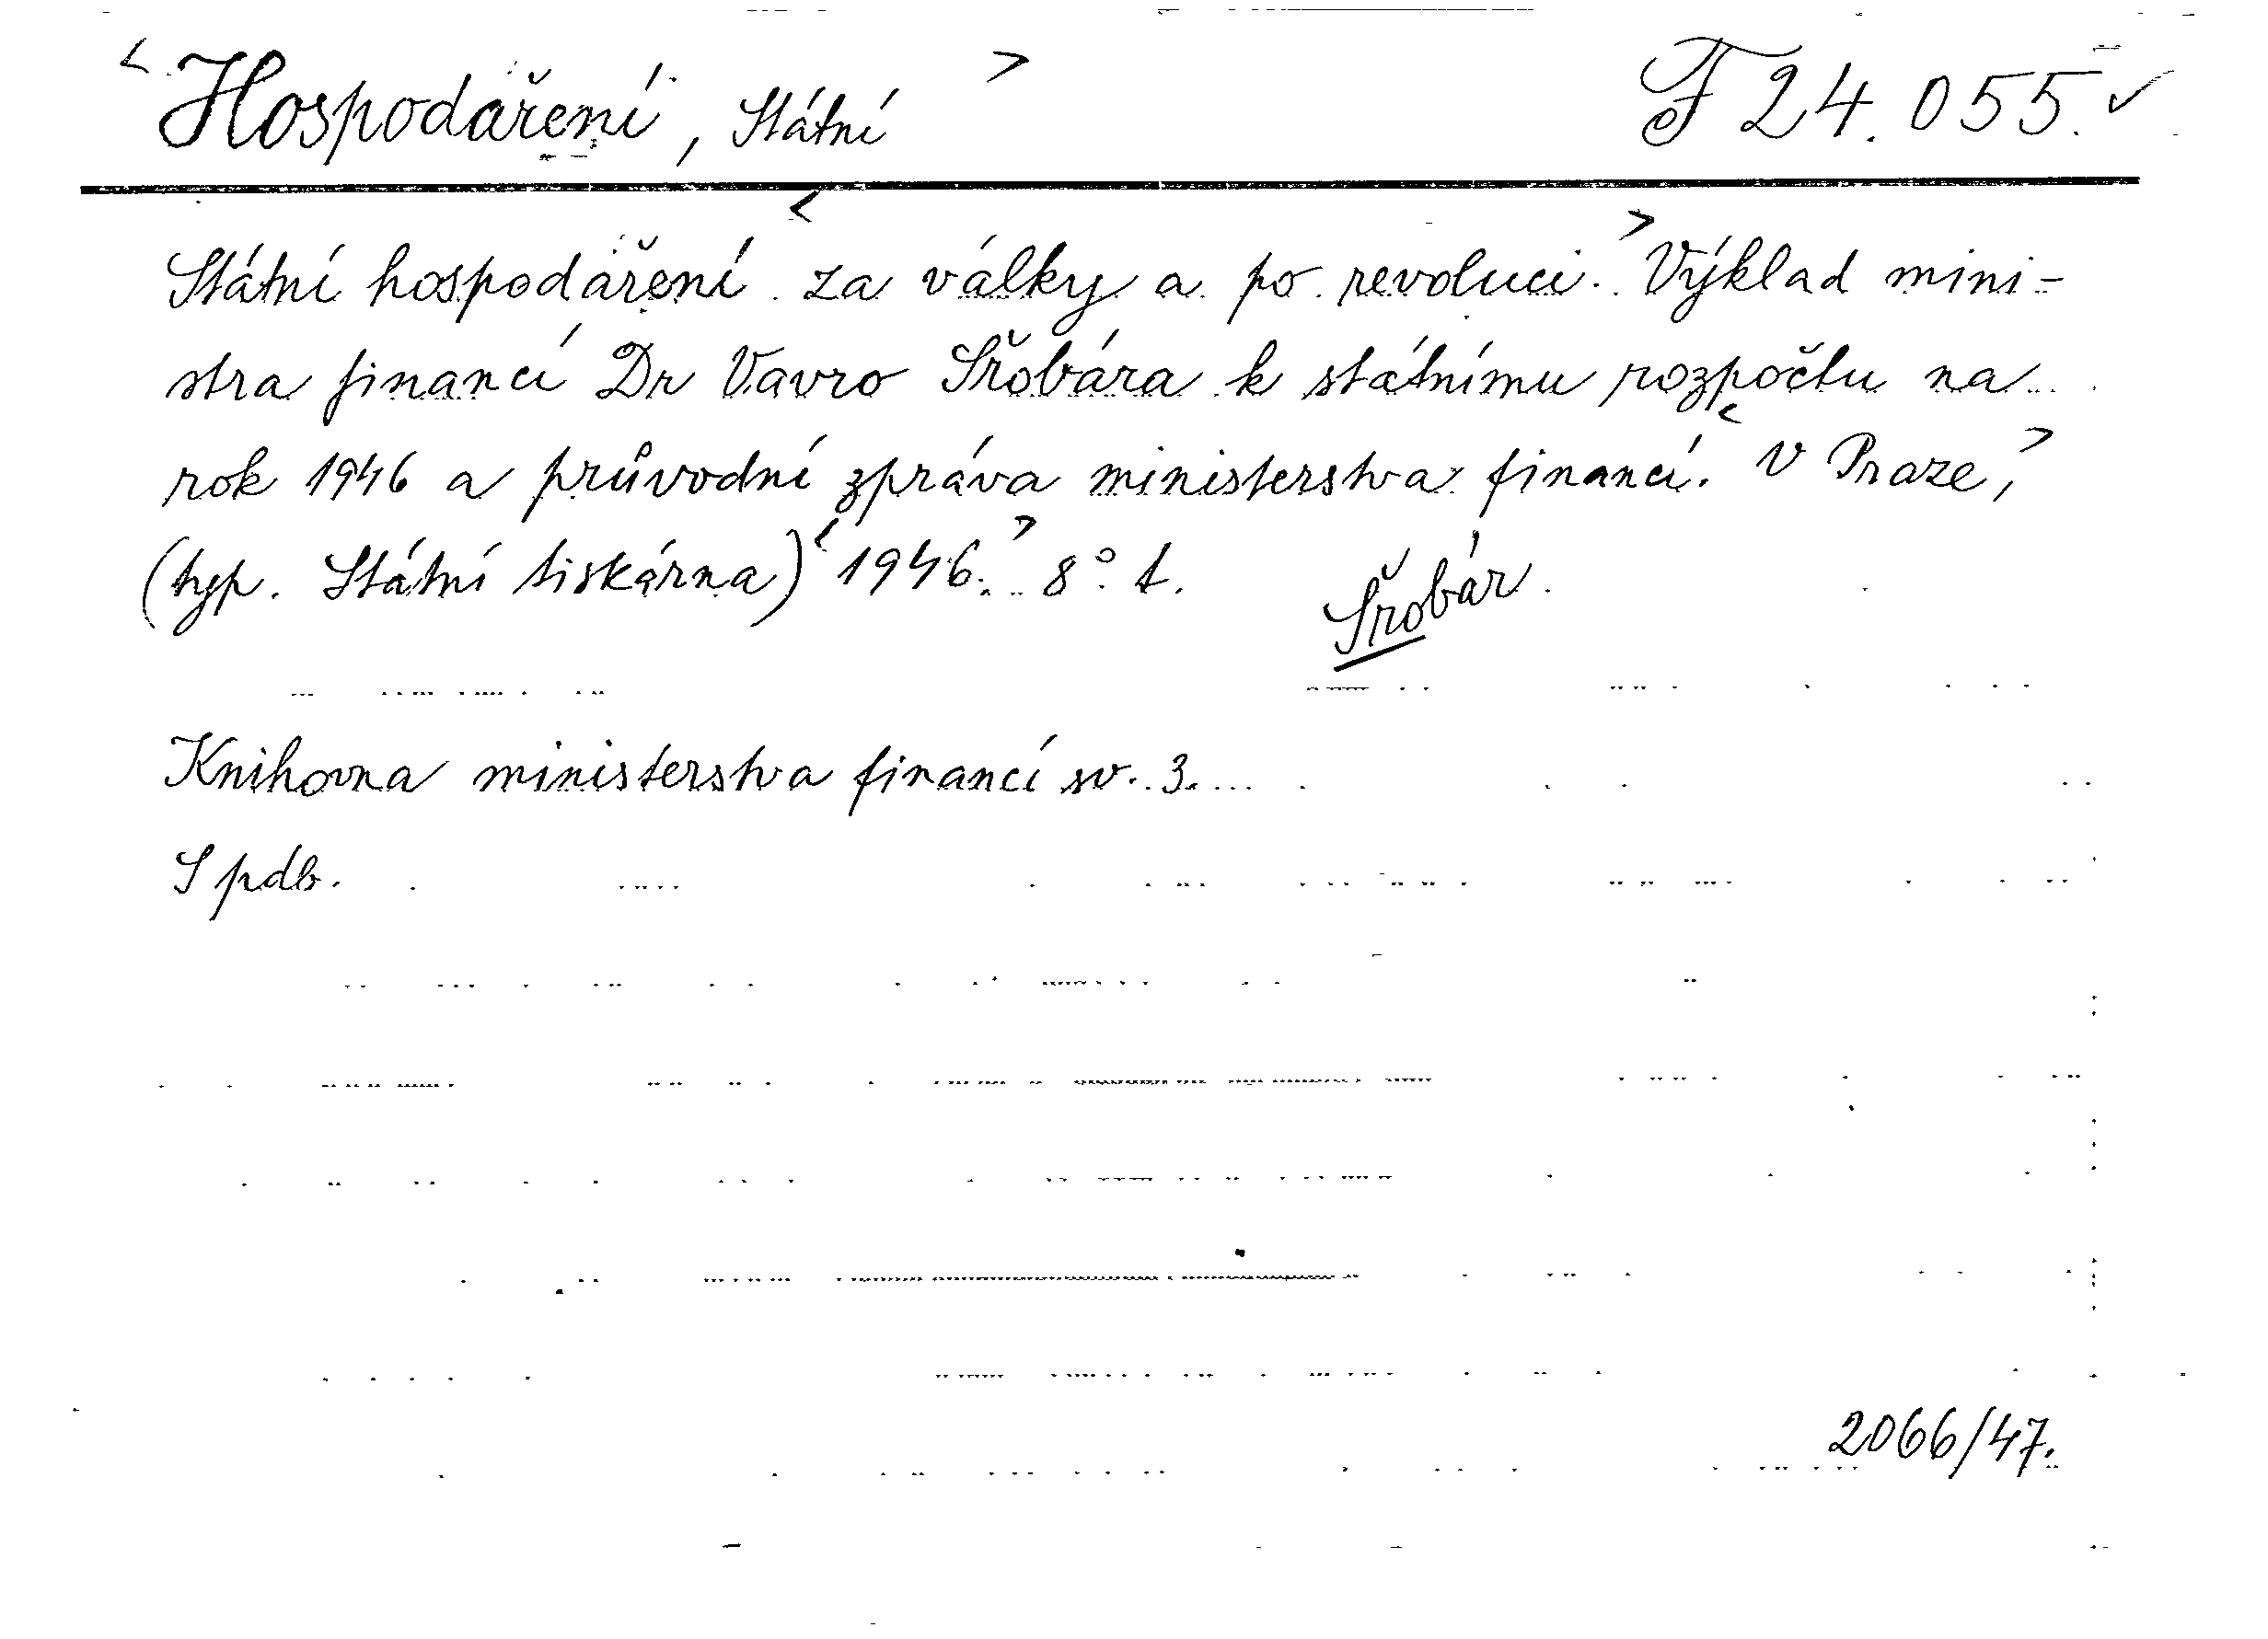 <Hospodaření, Státní> F 24.055.✓
<Státní hospodaření za války a po revoluci.> Výklad mini-
stra financí Dr Vavro Šrobára k státnímu rozpočtu na
rok 1946 a průvodní zpráva ministerstva financí. <V Praze,>
(typ. Státní tiskárna) <1946.> 8°. t.
Šrobár.
Knihovna ministerstva financí sv. 3.
S pdb.
2066/47.